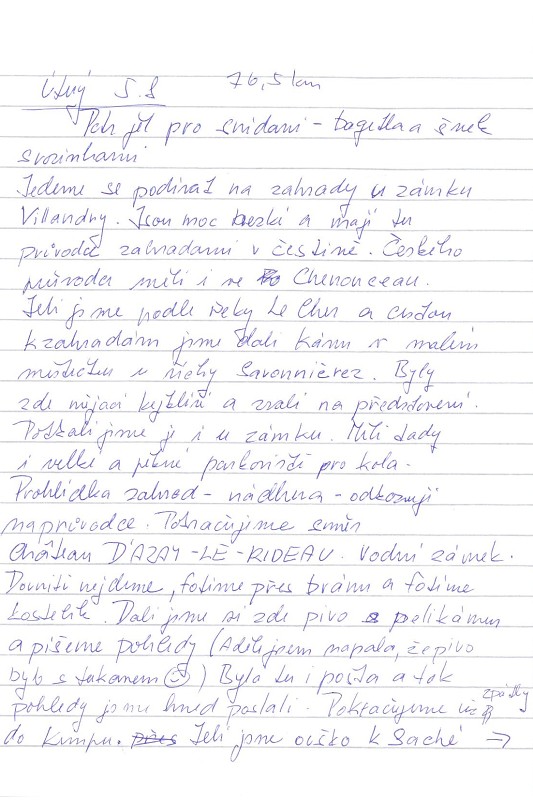 Úterý 5.8 76,5 km
Petr jel pro snídani - bagetka a šnek
s rozinkami
Jedeme se podívat na zahrady u zámku
Villandry. Jsou moc hezké a mají tu
průvodce zahradami v češtině. Českého
průvodce měli i ve Chenonceau.
Jeli jsme podle řeky Le Cher a cestou
k zahradám jsme dali kávu v malém
městečku u řieky Savonniérez. Byly
zde nějací kejklíři a zvali na představení.
Potkali jsme je i u zámku. Měli tady
i velké a pěkné parkoviště pro kola.
Prohlídka zahrad - nádhera - odkazuji
na průvodce. Pokračujeme směr
Château D'AZAY-LE-RIDEAU. Vodní zámek.
Dovnitř nejdeme, fotíme přes bránu a fotíme
kostelík. Dali jsme si zde pivo s pelikánem
a píšeme pohledy (Adéle jsem napala, že pivo
bylo s tukanem ☺) Byla tu i pošta a tak
pohledy jsme hned poslali. Pokračujeme už zpátky
do kempu. Jeli jsme ouško k Saché →